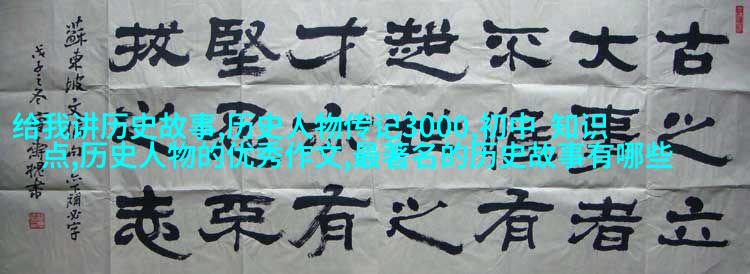 给我讲历史故事,历史人物传记3000,初中 知识
点,历史人物的优秀作文,最著名的历史故事有哪些
古之立
大事者
不惟有
超世之
才亦有
堅忍不
拔之志
蘇東坡文句亦下漏必字
戊子之冬濤書